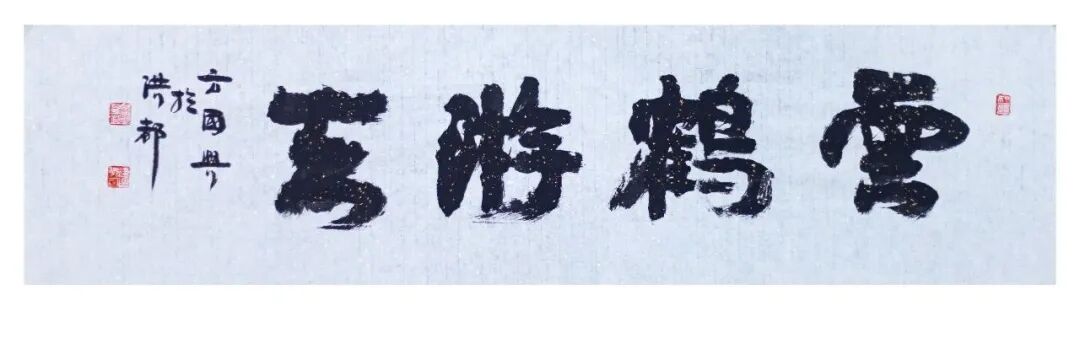 雲鶴游天
方國興
於洪都